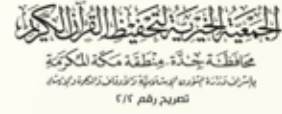 الجمعية الخيرية لتحفيظ القرآن الكريم
محافظة جدة - منطقة مكة المكرمة
تصريح رقم ٢/٢